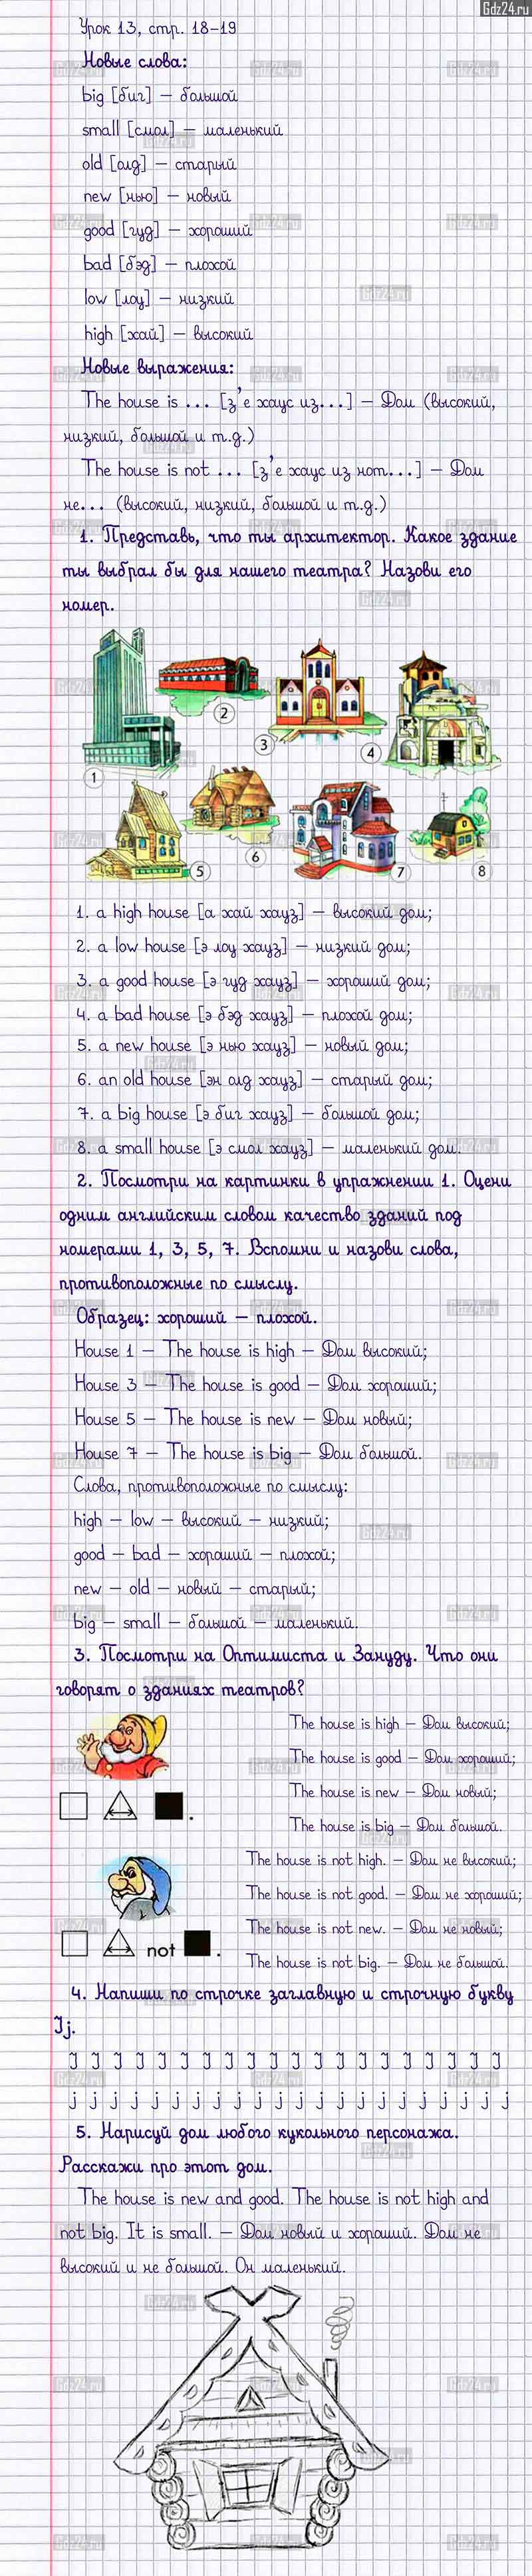 Gdz24.ru
Урок 13, стр. 18-19
Новые слова:
big [биг] – большой
small [смол] – маленький
old [олд] – старый
new [нью] – новый
good [гуд] – хороший
bad [бэд] – плохой
low [лоу] – низкий
high [хай] – высокий
Новые выражения:
The house is ... [з'е хаус из...] – Дом (высокий,
низкий, большой и т.д.)
The house is not ... [з'е хаус из нот...] – Дом
не... (высокий, низкий, большой и т.д.)
1. Представь, что ты архитектор. Какое здание
ты выбрал бы для нашего театра? Назови его
номер.
1
2
3
4
5
6
7
8
1. a high house [а хай хауз] – высокий дом;
2. a low house [э лоу хауз] – низкий дом;
3. a good house [э гуд хауз] – хороший дом;
4. a bad house [э бэд хауз] – плохой дом;
5. a new house [э нью хауз] – новый дом;
6. an old house [эн олд хауз] – старый дом;
7. a big house [э биг хауз] – большой дом;
8. a small house [э смол хауз] – маленький дом.
2. Посмотри на картинки в упражнении 1. Оцени
одним английским словом качество зданий под
номерами 1, 3, 5, 7. Вспомни и назови слова,
противоположные по смыслу.
Образец: хороший – плохой.
House 1 – The house is high – Дом высокий;
House 3 – The house is good – Дом хороший;
House 5 – The house is new – Дом новый;
House 7 – The house is big – Дом большой.
Слова, противоположные по смыслу:
high – low – высокий – низкий;
good – bad – хороший – плохой;
new – old – новый – старый;
big – small – большой – маленький.
3. Посмотри на Оптимиста и Зануду. Что они
говорят о зданиях театров?
The house is high – Дом высокий;
The house is good – Дом хороший;
The house is new – Дом новый;
The house is big – Дом большой.
The house is not high. – Дом не высокий;
The house is not good. – Дом не хороший;
The house is not new. – Дом не новый;
not .
The house is not big. – Дом не большой.
4. Напиши по строчке заглавную и строчную букву
Jj.
J J J J J J J J J J J J J J J J J J J J
j j j j j j j j j j j j j j j j j j j j
5. Нарисуй дом любого кукольного персонажа.
Расскажи про этот дом.
The house is new and good. The house is not high and
not big. It is small. – Дом новый и хороший. Дом не
высокий и не большой. Он маленький.